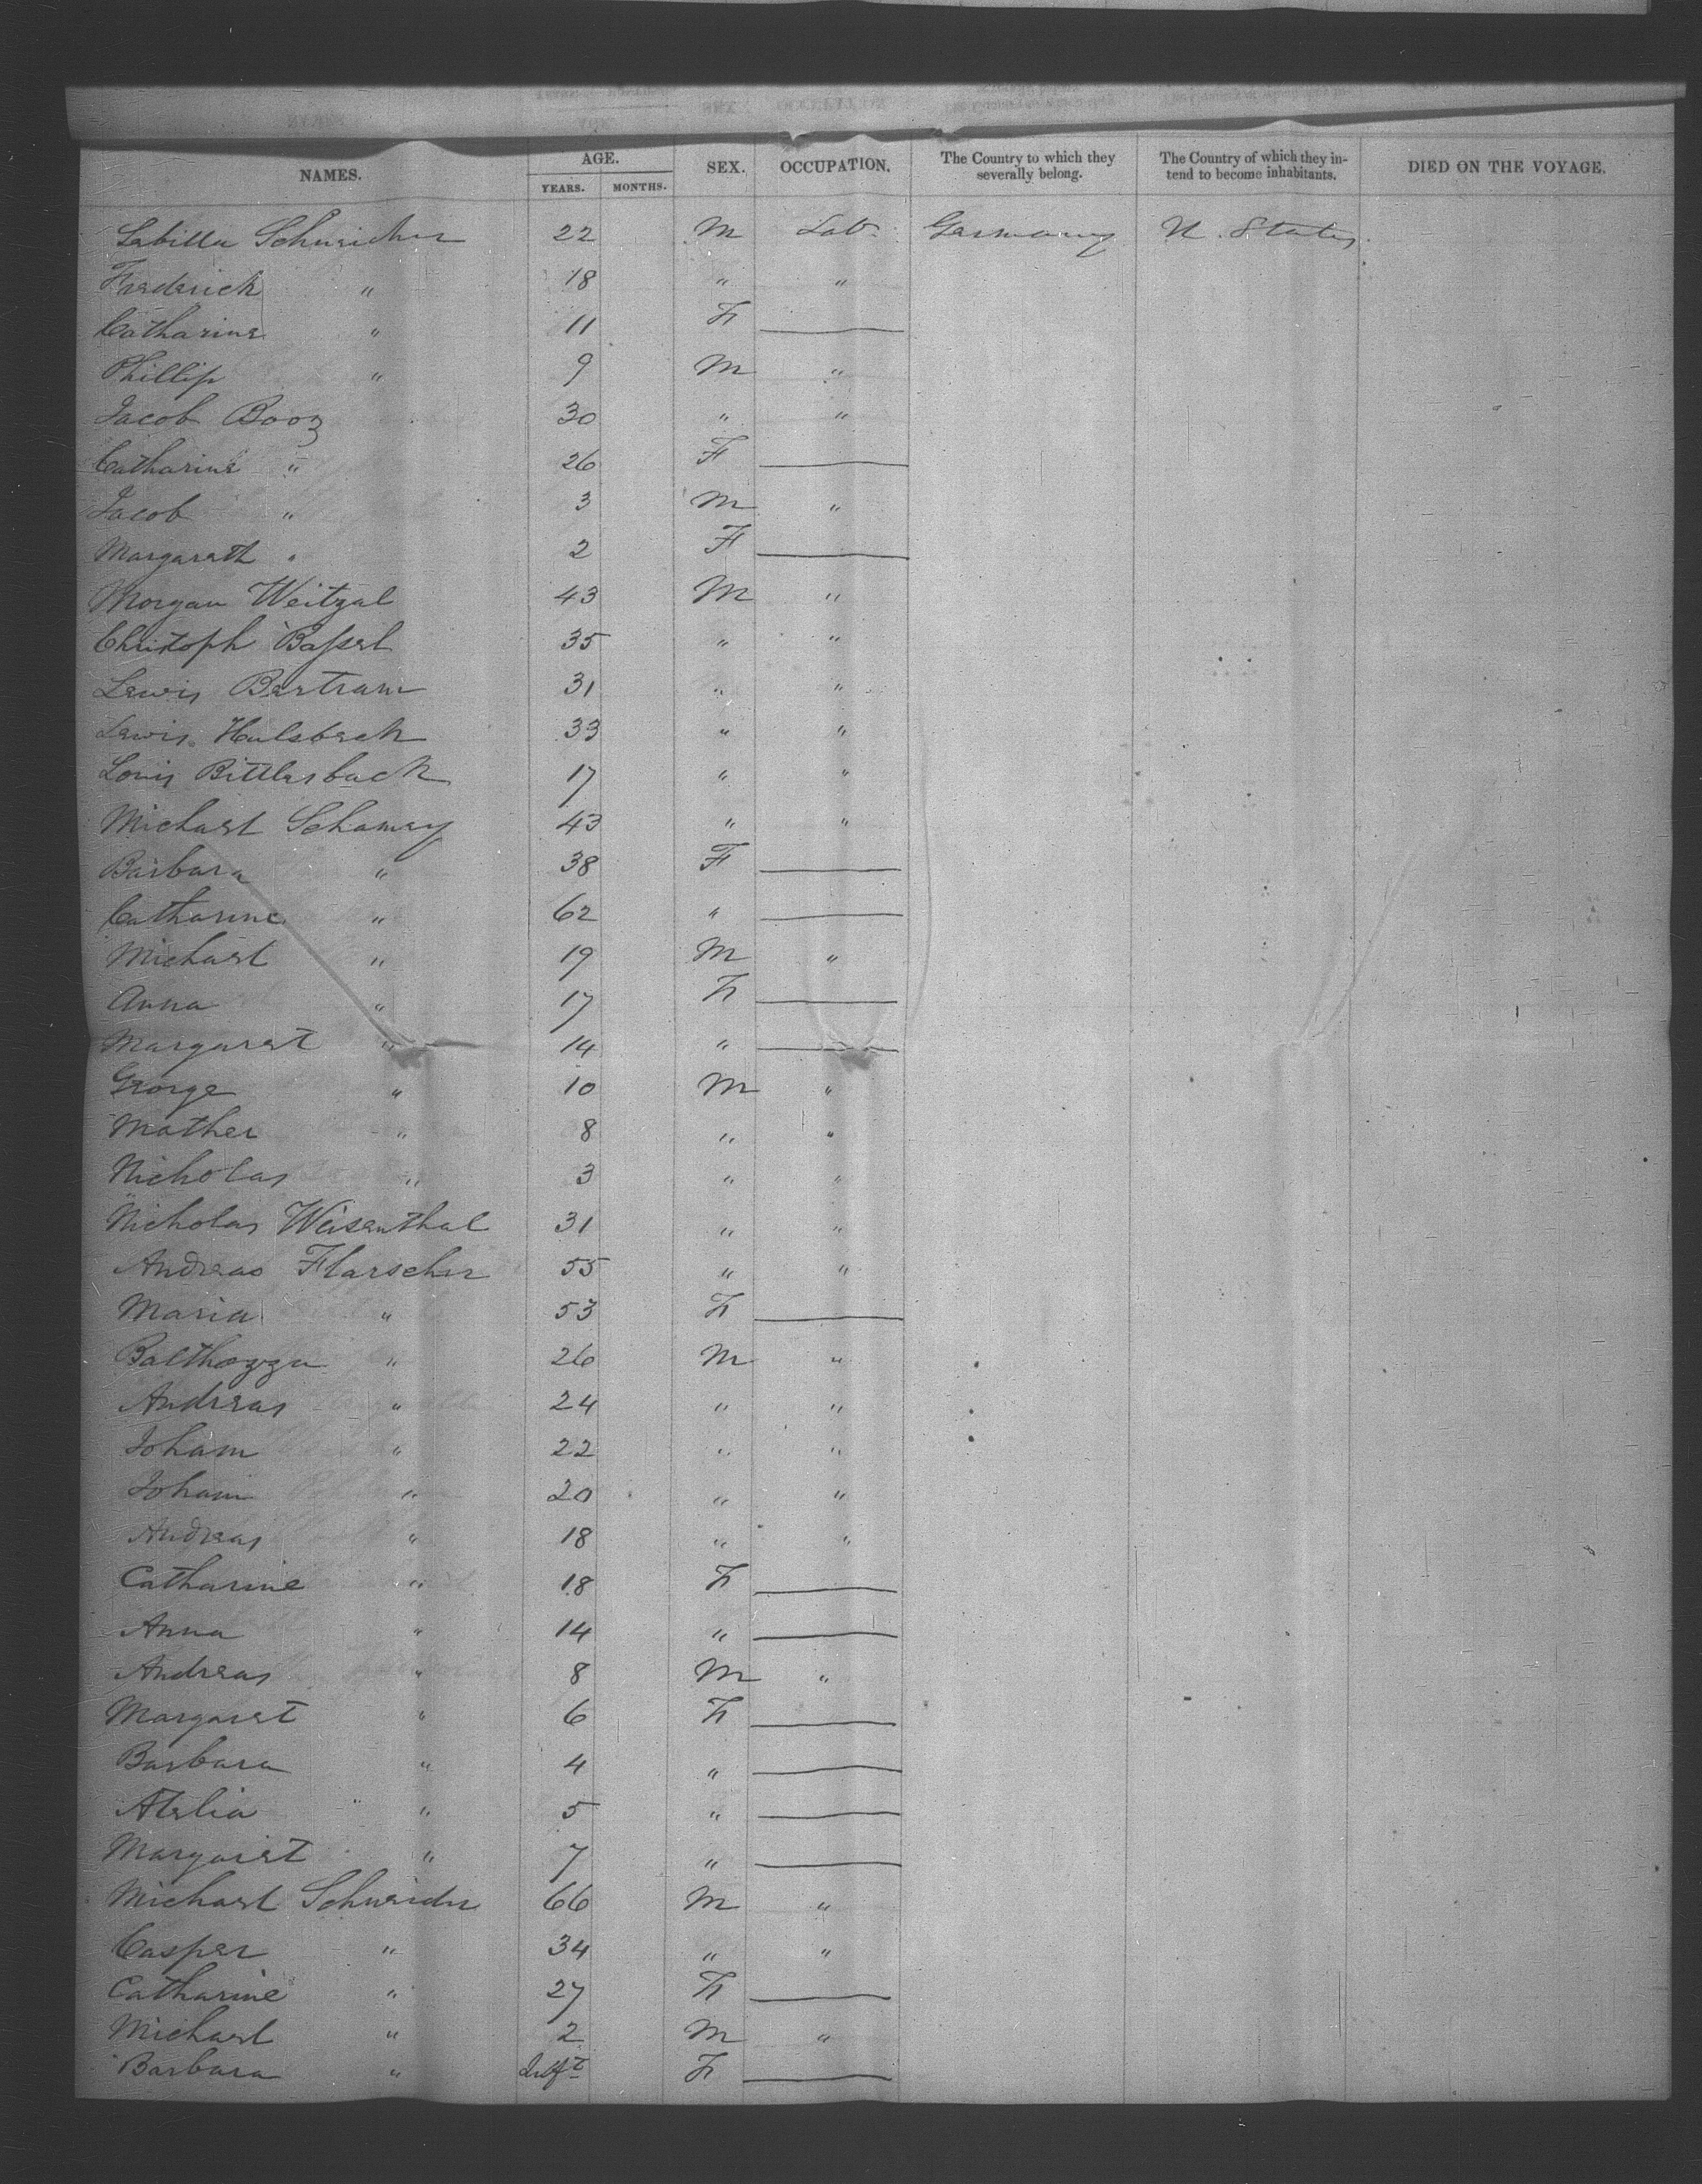 NAMES. AGE. YEARS. MONTHS. SEX. OCCUPATION. The Country to which they severally belong. The Country of which they intend to become inhabitants. DIED ON THE VOYAGE.
Sabilla Schneider 22 M Lab. Germany U. States
Frederick " 18 " "
Catharine " 11 F —
Phillip " 9 M "
Jacob Booz 30 " "
Catharine " 26 F —
Jacob " 3 M "
Margareth " 2 F —
Morgan Weitzel 43 M "
Christoph Bassel 35 " "
Lewis Bertram 31 " "
Lewis Hulsbeck 33 " "
Louis Bittlerback 17 " "
Michael Schamey 43 " "
Barbara " 38 F —
Catharine " 62 " —
Michael " 19 M "
Anna " 17 F —
Margaret " 14 " —
George " 10 M "
Mather " 8 " "
Nicholas " 3 " "
Nicholas Weisenthal 31 " "
Andreas Flarscher 55 " "
Maria " 53 F —
Balthozza " 26 M "
Andreas " 24 " "
Joham " 22 " "
Joham " 20 " "
Andreas " 18 " "
Catharine " 18 F —
Anna " 14 " —
Andreas " 8 M "
Margaret " 6 F —
Barbara " 4 " —
Atelia " 5 " —
Margaret " 7 " —
Michael Schneider 66 M "
Casper " 34 " "
Catharine " 27 F —
Michael " 2 M "
Barbara " Inft F —